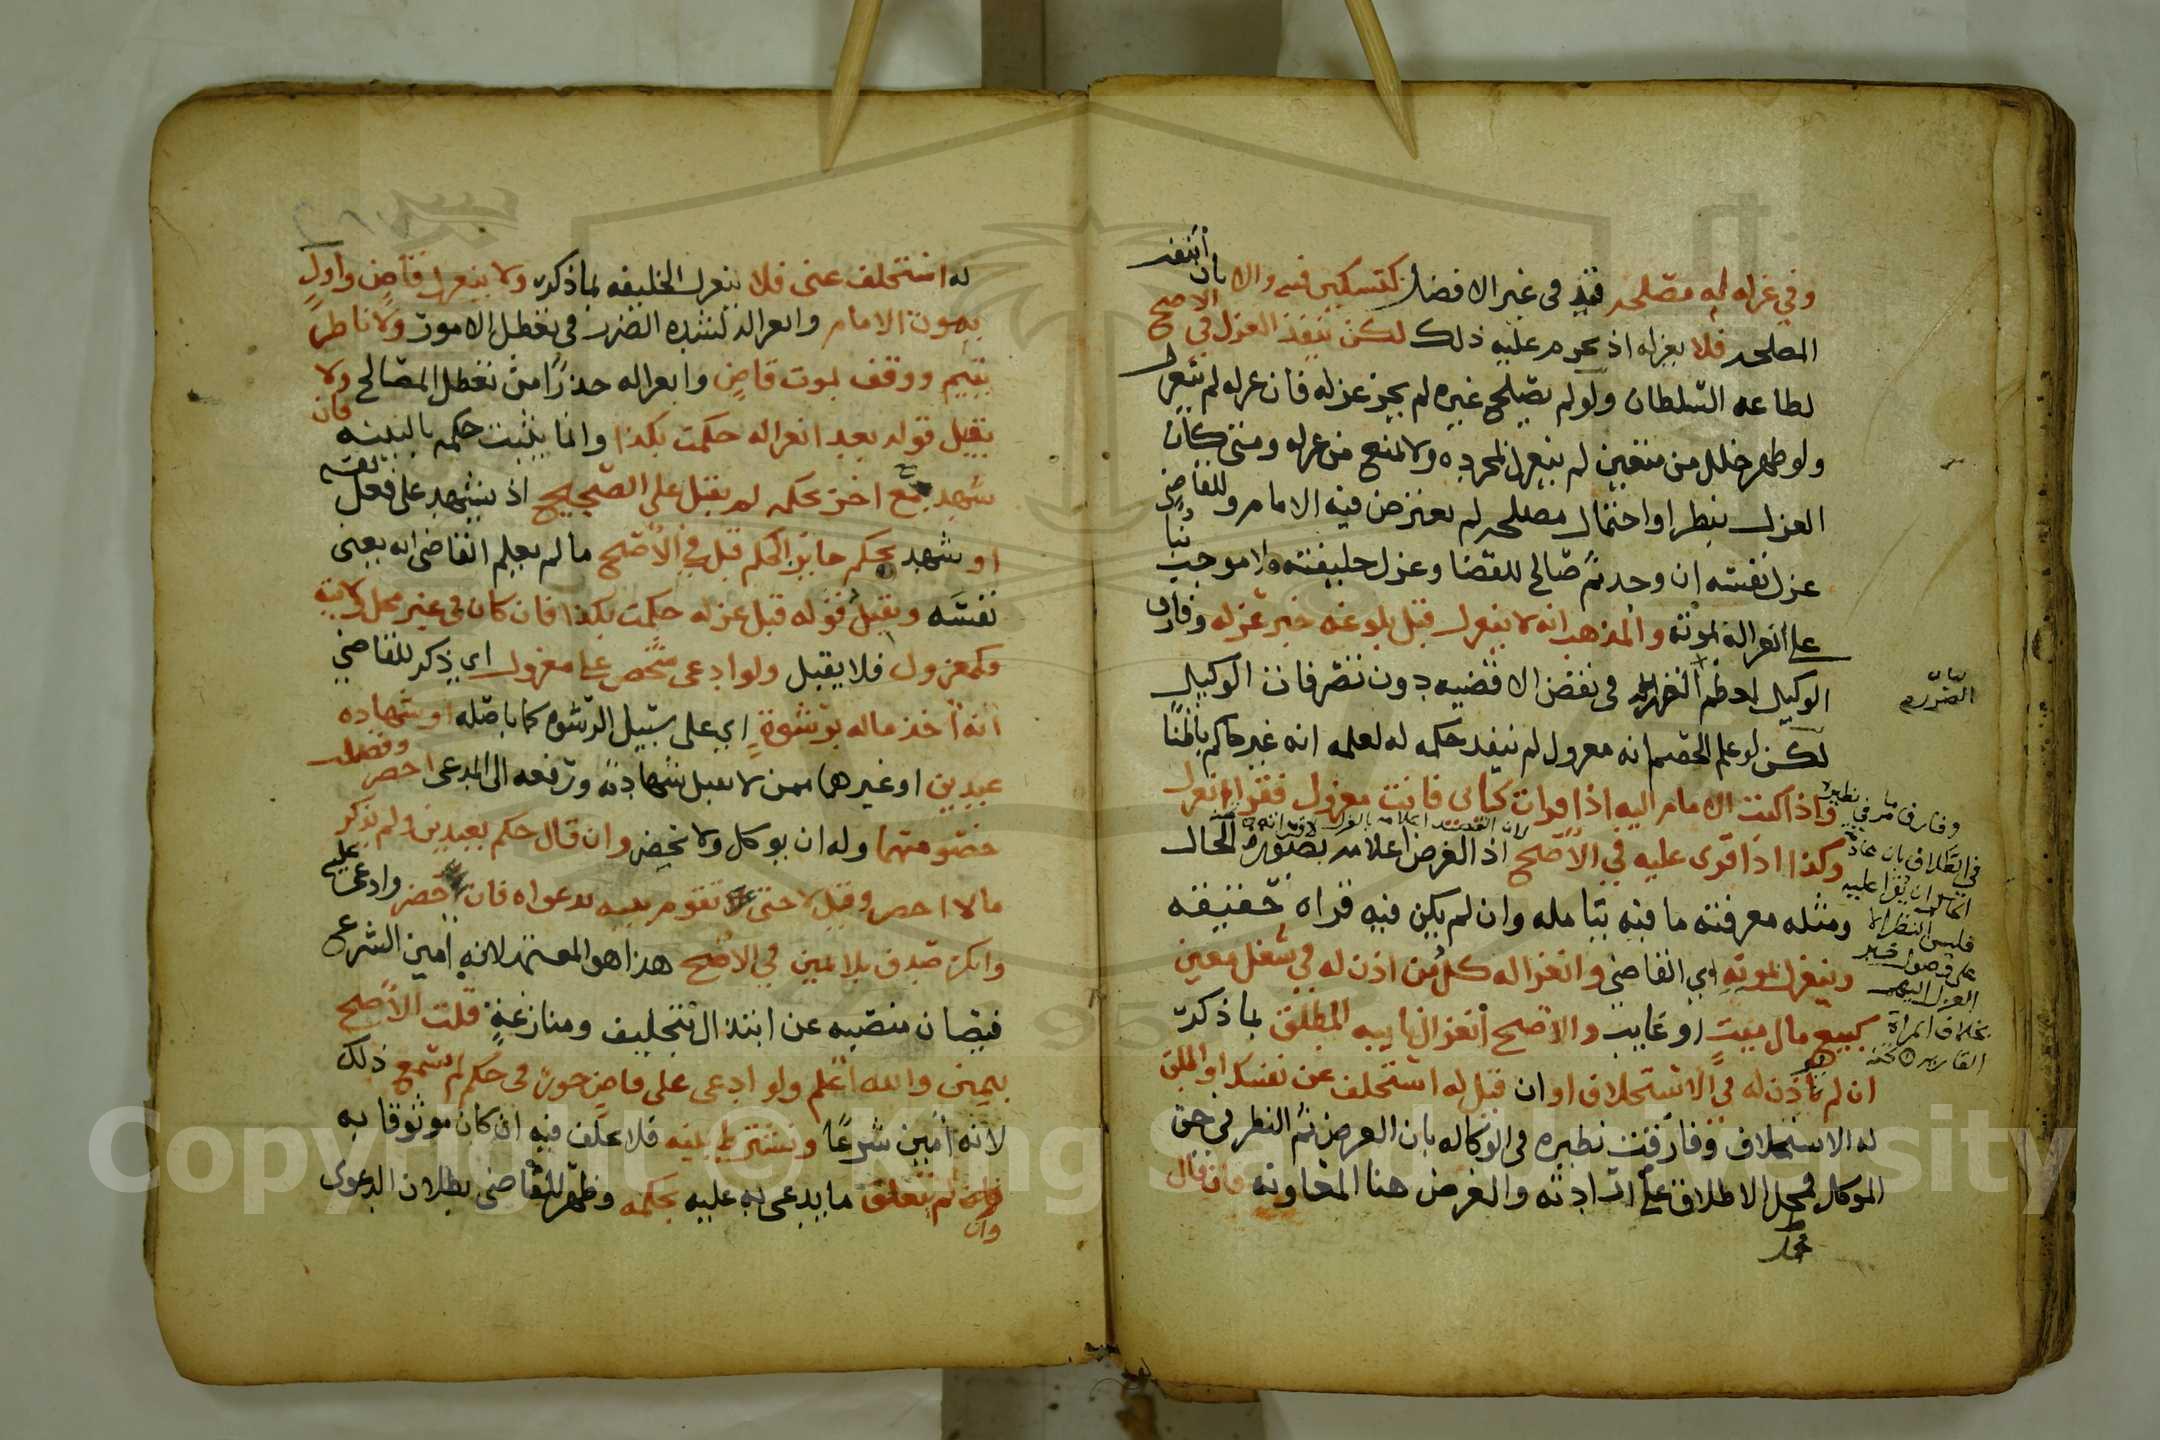 وفي عزله به مصلحة قيد في غير الافضل كتسكين فتنه والا بان انتفت
المصلحه فلا يعزله اذ يحرم عليه ذلك لكن ينفذ العزل في الاصح
لطاعه السلطان ولو لم يصلح غيره لم يجز عزله فان عزله لم ينعزل
ولو ظهر خلل من متعين لم ينعزل لمجرده ولا منع من عزله ومتى كان
العزل بنظر او احتمال مصلحه لم يعترض فيه الامام وللقاضي
عزل نفسه ان وجد ثم صالح للقضا وعزل خليفته ولا موجب
على انعزاله لموته والمذهب انه لا ينعزل قبل بلوغه خبر عزله وفارق
الوكيل لعظم الضرر في نقض الاقضيه دون تصرفات الوكيل
لكن لو علم الخصم انه معزول لم ينفذ حكمه له لعلمه انه غير حاكم باطنا
واذا كتب الامام اليه اذا قرات كتابي فانت معزول فقراه انعزل
وكذا اذا قري عليه في الاصح اذ الغرض اعلامه بصورة الحال
ومثله معرفته ما فيه بتامله وان لم يكن فيه قراه حقيقه
وينعزل بموته اي القاضي وانعزاله كل من اذن له في شغل معين
كبيع مال ميت او غايب والاصح انعزال نايبه المطلق لما ذكر
ان لم يأذن له في الاستخلاف او ان قيل له استخلف عن نفسك او اطلق
له الاستخلاف وفارقت نظيره في الوكاله بان الغرض ثم النظر في حق
الموكل فحمل الاطلاق على ارادته والغرض هنا المعاونه فان قال
الضرر
وفارق ما مر في نظيره
في الطلاق بان عادة
الحاكم ان يقرا عليه
فليس النظر الا
على وصول خبر
العزل اليهم
بخلاف المراة
القاريه تحفه
له استخلف عني فلا ينعزل الخليفه لما ذكر ولا ينعزل قاض ووال
بموت الامام وانعزاله لشده الضرر في تعطل الامور ولا ناظر
يتيم ووقف بموت قاض وانعزاله حذرا من تعطل المصالح ولا
يقبل قوله بعد انعزاله حكمت بكذا وانما يثبت حكمه بالبينه فان
شهد مع اخر بحكمه لم يقبل على الصحيح اذ يشهد على فعل نفسه
او شهد بحكم حاكم جايز الحكم قبل في الاصح ما لم يعلم القاضي انه يعني
نفسه ويقبل قوله قبل عزله حكمت بكذا فان كان في غير محل ولايته
فكمعزول فلا يقبل ولو ادعى شخص على معزول اي ذكر للقاضي
انه اخذ ماله برشوة اي على سبيل الرشوه كما باصله او شهاده
عبدين او غيرهما ممن لا تقبل شهادته ورفعه الى المدعى احضر وفصلت
خصومتهما وله ان يوكل ولا يحضر وان قال حكم بعبدين ولم يذكر
مالا احضر وقيل لا حتى تقوم بينه بدعواه فان حضر وادعى عليه
وانكر صدق بلا يمين في الاصح هذا هو المعتمد لانه امين الشرع
فيصان منصبه عن ابتذال بتحليف ومنازعة قلت الاصح
بيمين والله اعلم ولو ادعى على قاض جور في حكم لم تسمع ذلك
لانه امين شرعا ويشترط بينه فلا يحلف فيه ان كان موثوقا به
وان لم يتعلق ما يدعى به عليه بحكمه وظهر للقاضي بطلان الدعوى
Copyright © King Saud University